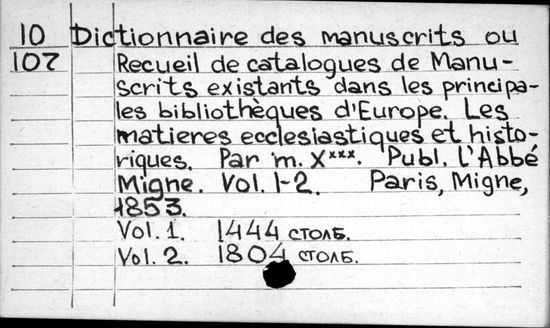 10 Dictionnaire des manuscrits ou
107 Recueil de catalogues de Manu-
scrits existants dans les principa-
les bibliothèques d'Europe. Les
matieres ecclesiastiques et histo-
riques. Par m. X***. Publ. L'Abbé
Migne. Vol. 1-2. Paris, Migne,
1853.
Vol. 1. 1444 столб.
Vol. 2. 1804 столб.